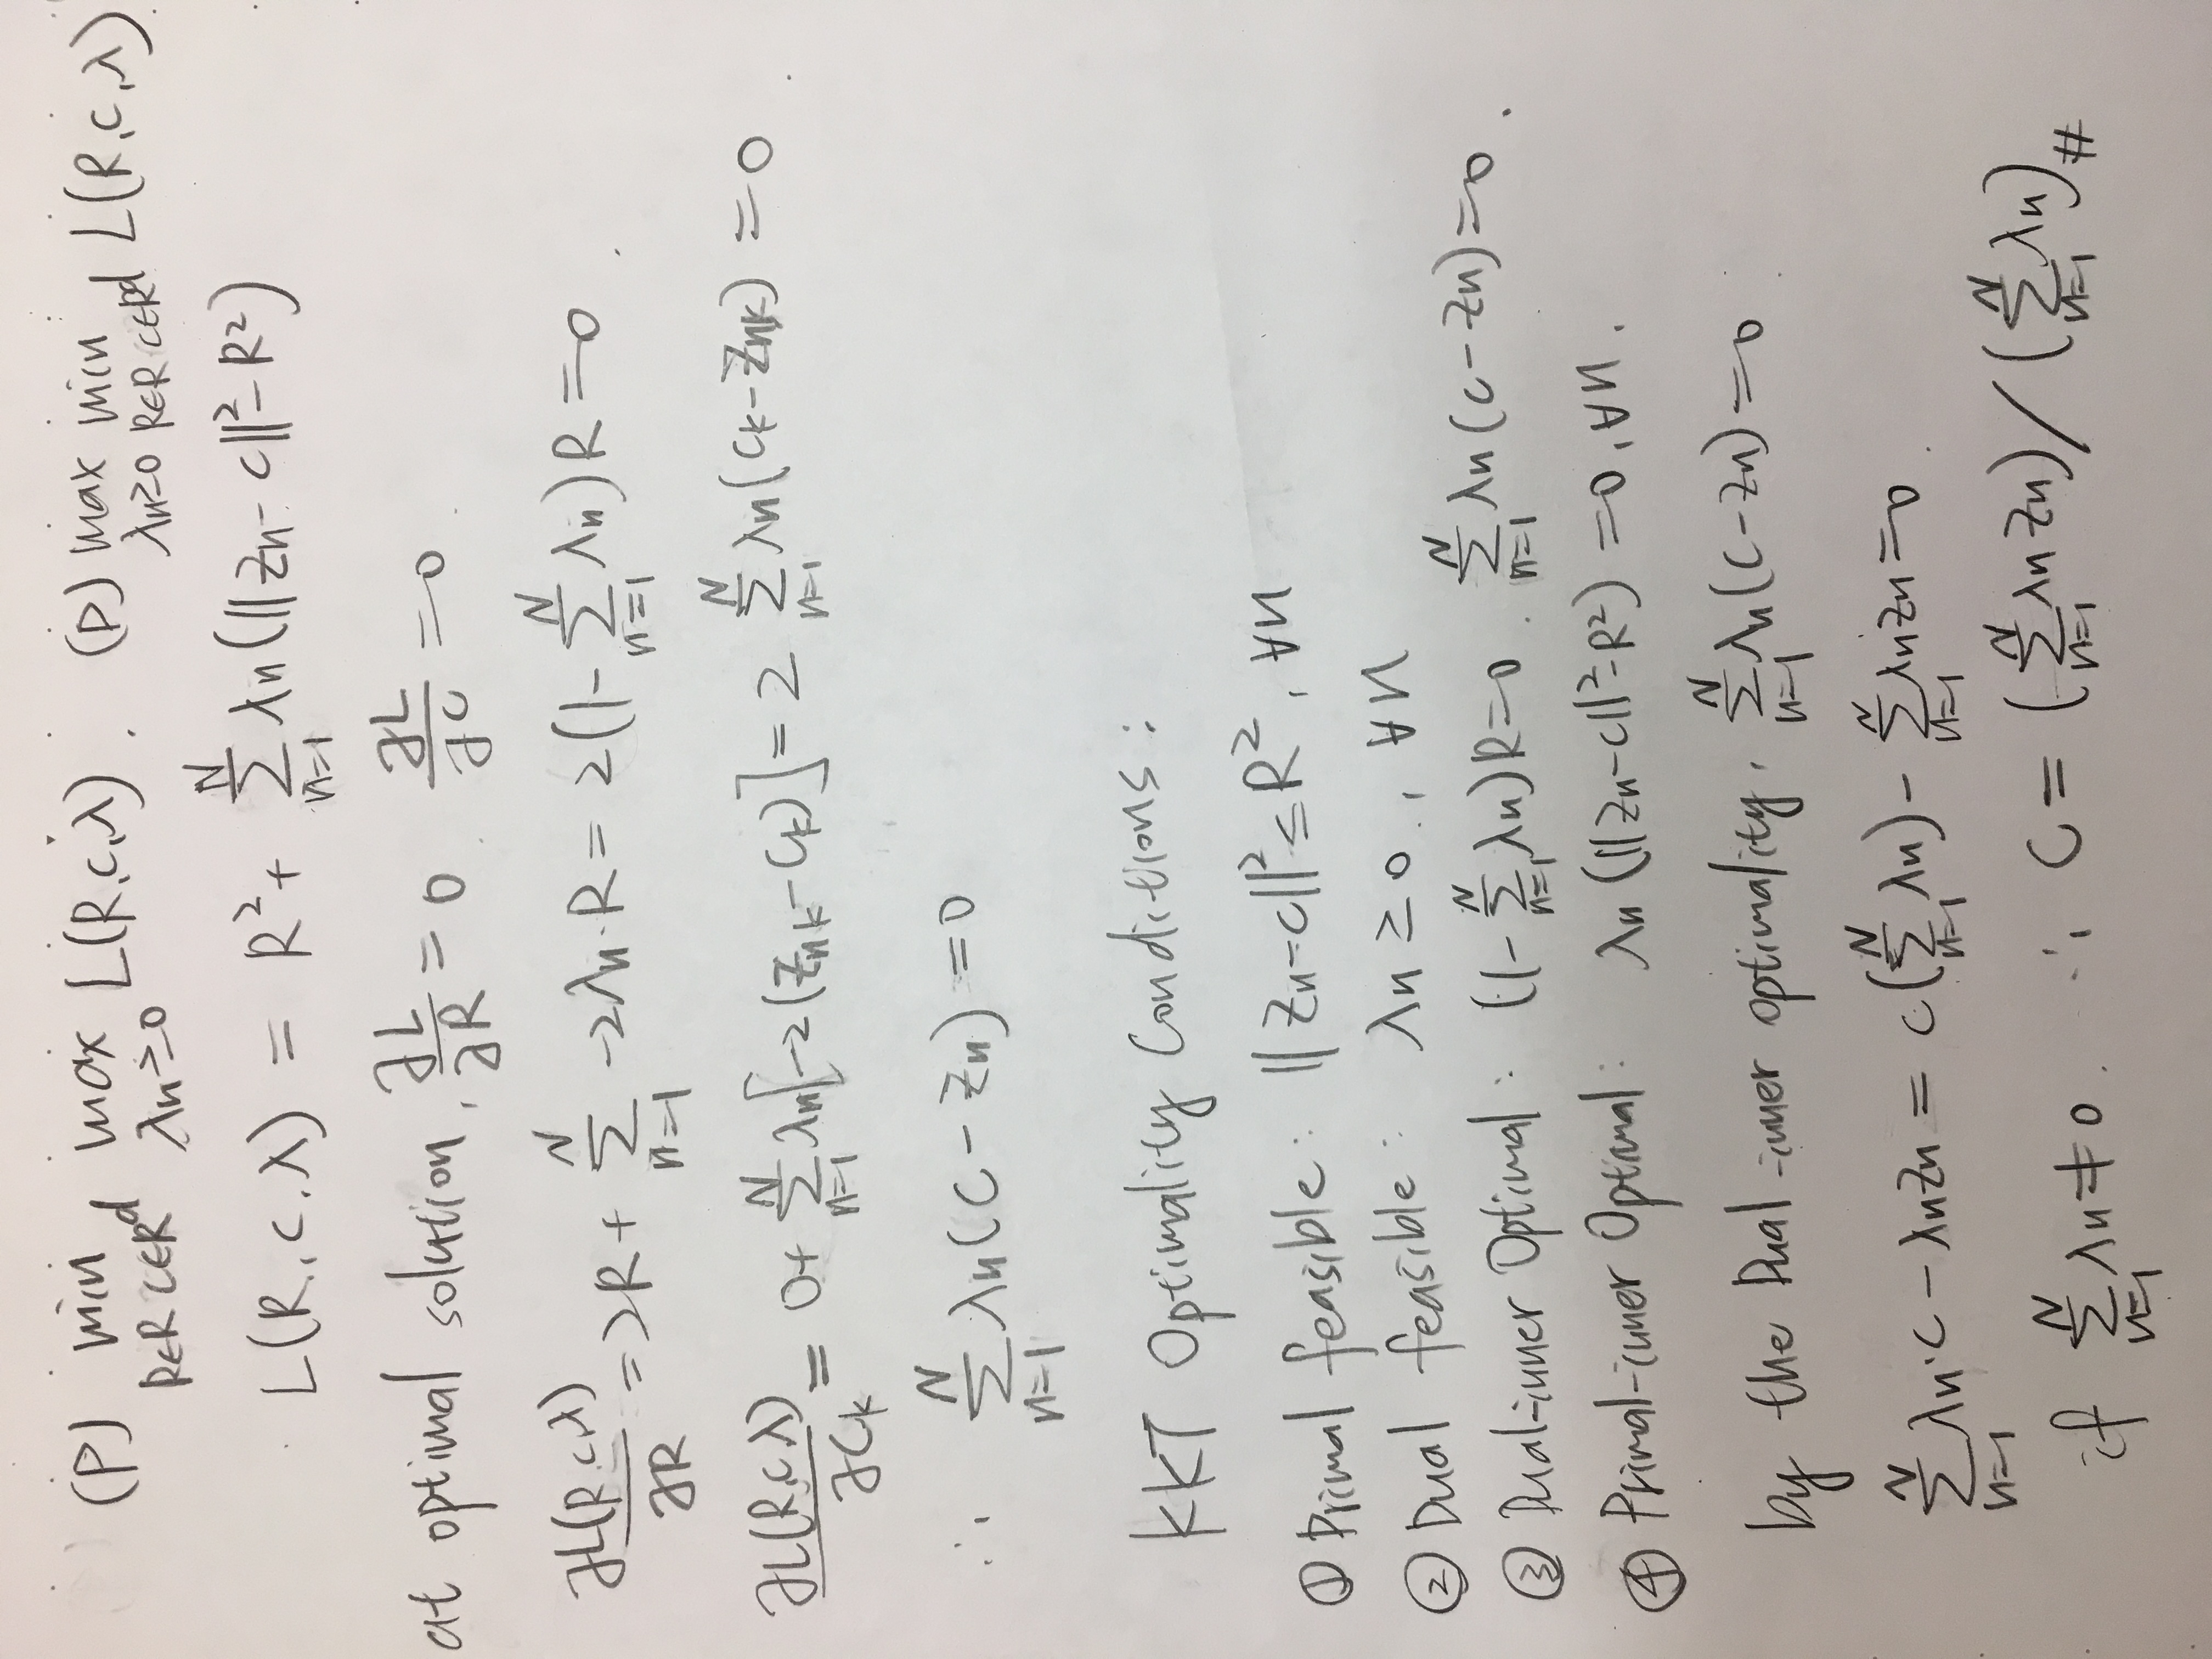 (P) min R∈R C∈R^d max λn≥0 L(R,c,λ). (D) max λn≥0 min R∈R C∈R^d L(R,c,λ).
L(R,c,λ) = R² + Σ_{n=1}^{N} λn(||Zn-c||²-R²)
at optimal solution, ∂L/∂R = 0. ∂L/∂C = 0.
∂L(R,c,λ)/∂R = 2R + Σ_{n=1}^{N} -2λn·R = 2(1-Σ_{n=1}^{N} λn)R = 0.
∂L(R,c,λ)/∂Ck = 0+ Σ_{n=1}^{N} λn[-2(Znk-Ck)] = 2 Σ_{n=1}^{N} λn(Ck-Znk) = 0.
∴ Σ_{n=1}^{N} λn(C-Zn) = 0
KKT Optimality Conditions:
① Primal feasible: ||Zn-c||² ≤ R², ∀n
② Dual feasible: λn ≥ 0, ∀n
③ Dual-inner Optimal: (1-Σ_{n=1}^{N} λn)R=0. Σ_{n=1}^{N} λn(c-Zn)=0.
④ Primal-inner Optimal: λn(||Zn-c||²-R²) = 0, ∀n.
by the Dual-inner optimality, Σ_{n=1}^{N} λn(C-Zn)=0
Σ_{n=1}^{N} λn·C - λnZn = C(Σ_{n=1}^{N} λn) - Σ_{n=1}^{N} λnZn=0.
if Σ_{n=1}^{N} λn≠0. ∴ C = (Σ_{n=1}^{N} λnZn)/(Σ_{n=1}^{N} λn) #